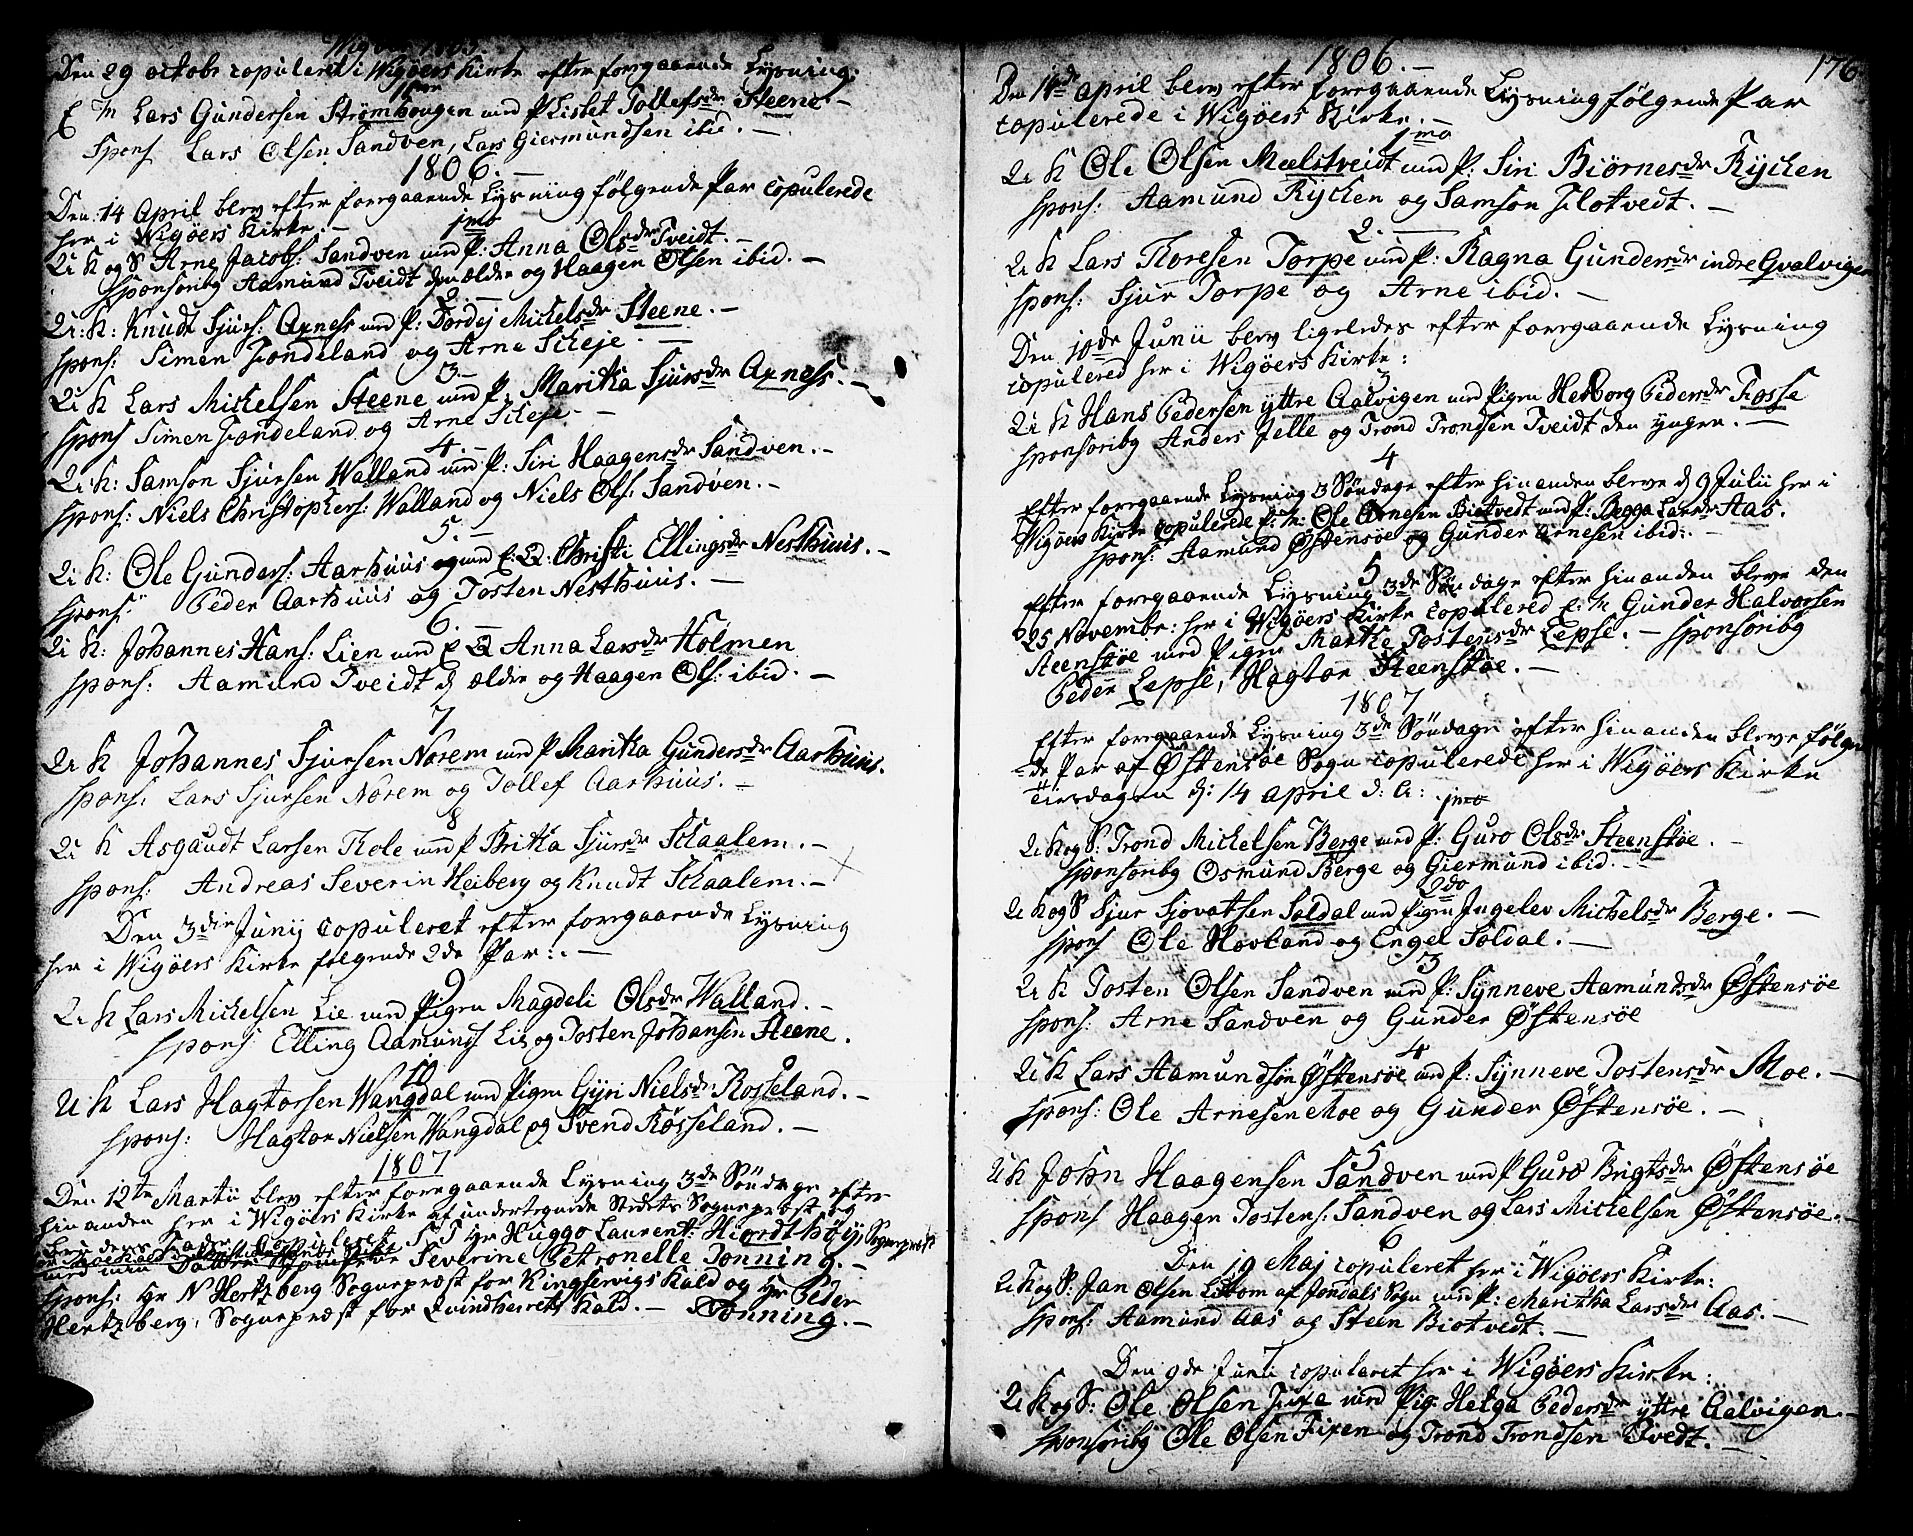 Wigøer 1805.
Den 29 octobr copuleret i Wigøers Kirke efter foregaaende Lysning:
E M Lars Gundersen Strømhougen med P Lislet Tollefsdr Steene. -
Spons Lars Olsen Sandven, Lars Giermundsen ibid. -
1806. -
Den: 14 April blev efter foregaaende Lysning følgende Par copulerede
her i Wigøers Kirke. -
1mo
U: K og S Arne Jacobs: Sandven med P: Anna Olsdr Tveidt. -
Sponsoribg Aamund Tveidt den ældre og Haagen Olsen ibid. -
2. -
U: K: Knudt Sjurs: Axness med P: Dordej Mickelsdr Steene. -
spons: Simen Tondeland og Arne Scheje. -
3. -
U: K Lars Mickelsen Steene med P. Maritha Sjursdr Axness. -
spons Simen Tondeland og Arne Scheje. -
4. -
U: K: Samson Sjursen Walland med P: Siri Haagensdr Sandven. -
spons: Niels Christophers: Walland og Niels Ols: Sandven. -
5. -
U: K: Ole Gunders: Aarhuus med E: Q: Christi Ellingsdr Nesthuus. -
spons: Peder Aarhuus og Tosten Nesthuus. -
6. -
U: K: Johannes Hans: Lien med E Q Anna Larsdr Holmen
spons: Aamund Tveidt d ældre og Haagen Ols: ibid. -
7
U: K Johannes Sjursen Norem med P Maritha Gundersdr Aarhuus.
spons: Lars Sjursen Norem og Tollef Aarhuus. -
8
U: K Asgaudt Larsen Thole med P Britha Sjursdr Schaalem. -
spons: Andreas Severin Heiberg og Knudt Schaalem. -
Den 3die Junij copuleret efter foregaaende Lysning
her i Wigøers Kirke følgende 2de Par: . -
9
U: K Lars Mickelsen Lie med Pigen Magdeli Olsdr Walland. -
spons Elling Aamunds Lie og Tosten Johansen Steene.
10
U: K Lars Hagtorsen Wangdal med Pigen Gyri Nielsdr Rosseland. -
spons: Hagtor Nielsen Wangdal og Svend Rosseland. -
1807
Den 12te Martii blev efter foregaaende Lysning 3de Søndage efter
hinanden her i Wigøers Kirke af undertegnede Stedets Sogneprest og
Brudens Fader copuleret S T Hr Huggo Laurent: Hiordthøy, Sogneprest
med min Datter Jomfrue Severine Petronelle Tonning. -
spons: Hr N Hertzberg Sogneprest for Kingservigs Kald og Hr Peder
Hertzberg, Sogneprest for Qvindherrets Kald. - Tonning. -
1806. -
176
Den 14de April blev efter foregaaende Lysning følgende Par
copulerede i Wigøers Kirke. -
1mo
U: K Ole Olsen Mælstveidt med P: Siri Biørnesdr Rycken
spons: Aamund Rycken og Samson Flotvedt. -
2. -
U: K Lars Thoresen Torpe med P: Ragna Gundersdr indre Qvalvigen
spons: Sjur Torpe og Arne ibid. -
Den 10de Junii blev ligeledes efter foregaaende Lysning
copulered her i Wigøers Kirke:
3
U: K Hans Pedersen yttre Aalvigen med Pigen Herborg Pedersdr Fosse
sponsoribg Anders Jelle og Trond Trondsen Tveidt den yngre. -
4
Efter foregaaende Lysning 3 Søndage efter hinanden bleve d 9 Julii her i
Wigøers Kirke copulerede E: M: Ole Arnesen Biotvedt med P: Begga Larsdr Aas.
spons: Aamund Østensøe og Gunder Arnesen ibid: -
5
Efter foregaaende Lysning 3de Søndage efter hinanden bleve den
25 Novembr: her i Wigøers Kirke copulered E: M Gunder Halvorsen
Steenstøe med Pigen Marthe Tostensdr Lepse. - Sponsoribg
Peder Lepse, Hagtor Steenstøe. -
1807
Efter foregaaende Lysning 3de Søndage efter hinanden bleve følgen
-de Par af Østensøe Sogn copulerede her i Wigøers Kirke
Tiirsdagen d: 14 April d: A: .
1mo
U: K og S: Trond Mickelsen Berge med P: Guro Olsdr Steenstøe. -
sponsoribg Osmund Berge og Giermund ibid. -
2do
U: K og S Sjur Sjovatsen Soldal med Pigen Ingelev Michelsdr Berge. -
spons Ole Hovland og Engel Soldal. -
3
U: K Tosten Olsen Sandven med P: Synneve Aamundsdr Østensøe
spons: Arne Sandven og Gunder Østensøe
4
U: K Lars Aamundsøn Østensøe med P: Synneve Tostensdr Moe. -
spons: Ole Arnesen Moe og Gunder Østensøe. -
5
U: K John Haagensen Sandven med P Guro Brigtsdr Østensøe
spons Haagen Tostens: Sandven og Lars Mickelsen Østensøe. -
6
Den 19 Maj copuleret her i Wigøers Kirke:
U: K og S: Jan Olsen af Jondals Sogn med P: Maritha Larsdr Aas. -
spons: Aamund Aas og Steen Biotvedt. -
7
Den 9de Junii copuleret her i Wigøers Kirke:
U: K og S: Ole Olsen Fixe med Pig. Helga Pedersdr yttre Aalvigen. -
sponsoribg Ole Olsen Fixen og Trond Trondsen Tvedt. -